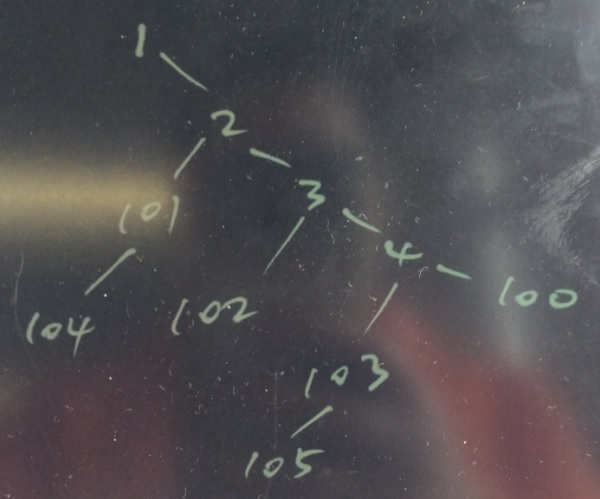 1
2
101 3
4
104 102 100
103
105